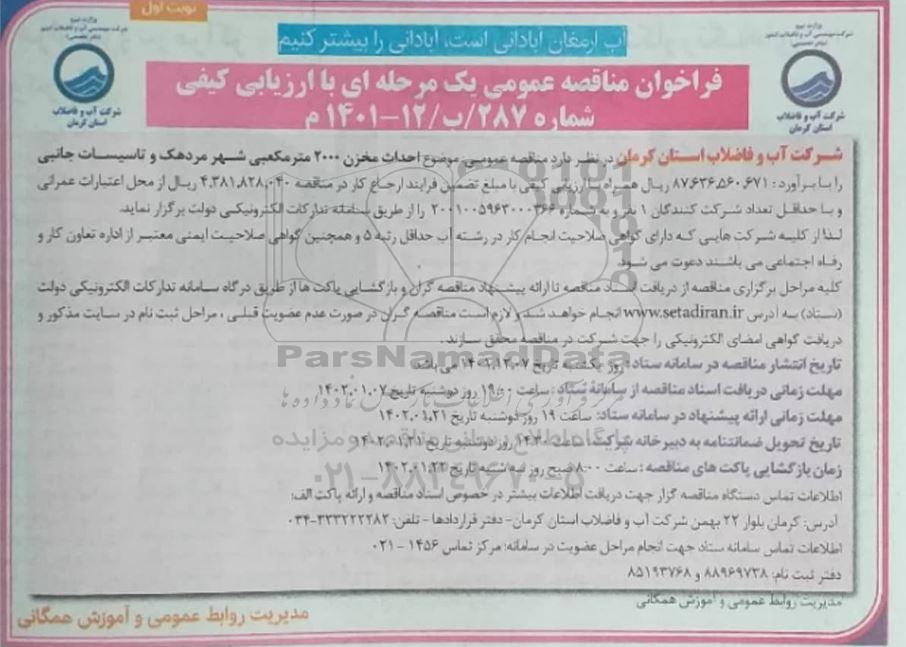 نوبت اول
وزارت نیرو
شرکت مهندسی آب و فاضلاب کشور
(مادر تخصصی)
شرکت آب و فاضلاب
استان کرمان
وزارت نیرو
شرکت مهندسی آب و فاضلاب کشور
(مادر تخصصی)
شرکت آب و فاضلاب
استان کرمان
آب ارمغان آبادانی است، آبادانی را بیشتر کنیم
فراخوان مناقصه عمومی یک مرحله ای با ارزیابی کیفی
شماره ۲۸۷/ب/۱۲-۱۴۰۱ م
شرکت آب و فاضلاب استان کرمان در نظر دارد مناقصه عمومی: موضوع احداث مخزن ۲۰۰۰ مترمکعبی شهر مردهک و تاسیسات جانبی
را با برآورد: ۸۷,۶۳۶,۵۶۰,۶۷۱ ریال همراه با ارزیابی کیفی با مبلغ تضمین فرایند ارجاع کار در مناقصه ۴,۳۸۱,۸۲۸,۰۴۰ ریال از محل اعتبارات عمرانی
و با حداقل تعداد شرکت کنندگان ۱ نفر و به شماره ۲۰۰۱۰۰۵۹۶۳۰۰۰۳۶۶ را از طریق سامانه تدارکات الکترونیکی دولت برگزار نماید.
لذا از کلیه شرکت هایی که دارای گواهی صلاحیت انجام کار در رشته آب حداقل رتبه ۵ و همچنین گواهی صلاحیت ایمنی معتبر از اداره تعاون کار و
رفاه اجتماعی می باشند دعوت می شود.
کلیه مراحل برگزاری مناقصه از دریافت اسناد مناقصه تا ارائه پیشنهاد مناقصه گران و بازگشایی پاکت ها از طریق درگاه سامانه تدارکات الکترونیکی دولت
(ستاد) به آدرس www.setadiran.ir انجام خواهد شد و لازم است مناقصه گران در صورت عدم عضویت قبلی، مراحل ثبت نام در سایت مذکور و
دریافت گواهی امضای الکترونیکی را جهت شرکت در مناقصه محقق سازند.
تاریخ انتشار مناقصه در سامانه ستاد: روز یکشنبه تاریخ ۱۴۰۱,۱۲,۰۷ می باشد
مهلت زمانی دریافت اسناد مناقصه از سامانه ستاد: ساعت ۱۹:۰۰ روز دوشنبه تاریخ ۱۴۰۲,۰۱,۰۷
مهلت زمانی ارائه پیشنهاد در سامانه ستاد: ساعت ۱۹ روز دوشنبه تاریخ ۱۴۰۲,۰۱,۲۱
تاریخ تحویل ضمانتنامه به دبیرخانه شرکت: ساعت ۱۴:۳۰ روز دوشنبه تاریخ ۱۴۰۲,۰۱,۲۱
زمان بازگشایی پاکت های مناقصه: ساعت ۸:۰۰ صبح روز سه شنبه تاریخ ۱۴۰۲,۰۱,۲۲
اطلاعات تماس دستگاه مناقصه گزار جهت دریافت اطلاعات بیشتر در خصوص اسناد مناقصه و ارائه پاکت الف:
آدرس: کرمان بلوار ۲۲ بهمن شرکت آب و فاضلاب استان کرمان- دفتر قراردادها - تلفن: ۳۳۳۲۲۲۲۸۲-۰۳۴
اطلاعات تماس سامانه ستاد جهت انجام مراحل عضویت در سامانه: مرکز تماس ۱۴۵۶ - ۰۲۱
دفتر ثبت نام: ۸۸۹۶۹۷۳۸ و ۸۵۱۹۳۷۶۸
مدیریت روابط عمومی و آموزش همگانی
مدیریت روابط عمومی و آموزش همگانی
ParsNamadData
پایگاه اطلاع رسانی مناقصه و مزایده
۰۲۱-۸۸۳۴۹۶۷۰-۵